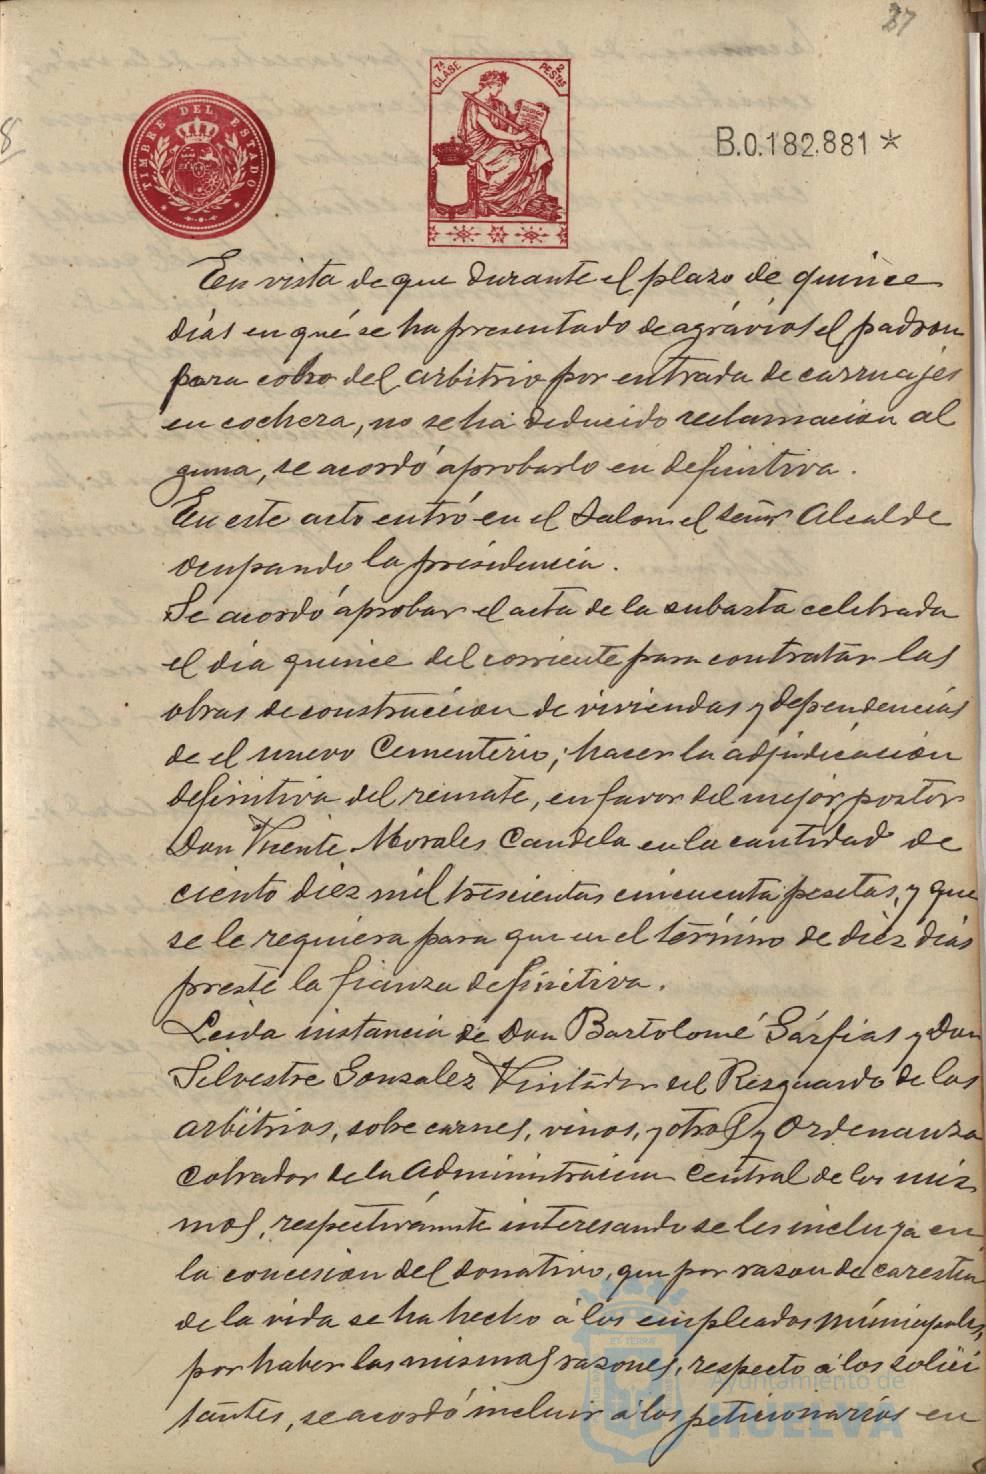 27
8
TIMBRE DEL ESTADO
7ª CLASE
2 PESTAS
B.0.182.881 *
En vista de que durante el plazo de quince
días en qué se ha presentado de agrávios el padron
para cobro del arbitrio por entrada de carruajes
en cochera, no se ha deducido reclamacion al
guna, se acordó aprobarlo en definitiva.
En este acto entró en el Salon el señor Alcalde
ocupando la présidencia.
Se acordó aprobar el acta de la subasta celebrada
el dia quince del corriente para contratar las
obras de construccion de viviendas y dependencias
de el nuevo Cementerio; hacer la adjudicación
definitiva del remate, en favor del mejor postor
Don Vicente Morales Candela en la cantidad de
ciento diez mil trescientas cincuenta pesetas, y que
se le requiera para que en el término de diez dias
preste la fianza definitiva.
Leida instancia de Don Bartolomé Gárfias y Don
Silvestre Gonzalez Visitador del Resguardo de los
arbitrios, sobre carnes, vinos, y otros y Ordenanza
Cobrador de la Administracion Central de los mis
mos, respectivamente interesando se les incluya en
la concesion del donativo, que por razon de carestia
de la vida se ha hecho á los empleados múnicipales,
por haber las mismas razones, respecto á los solici
tantes, se acordó incluir á los peticionarios en
Ayuntamiento de
HUELVA